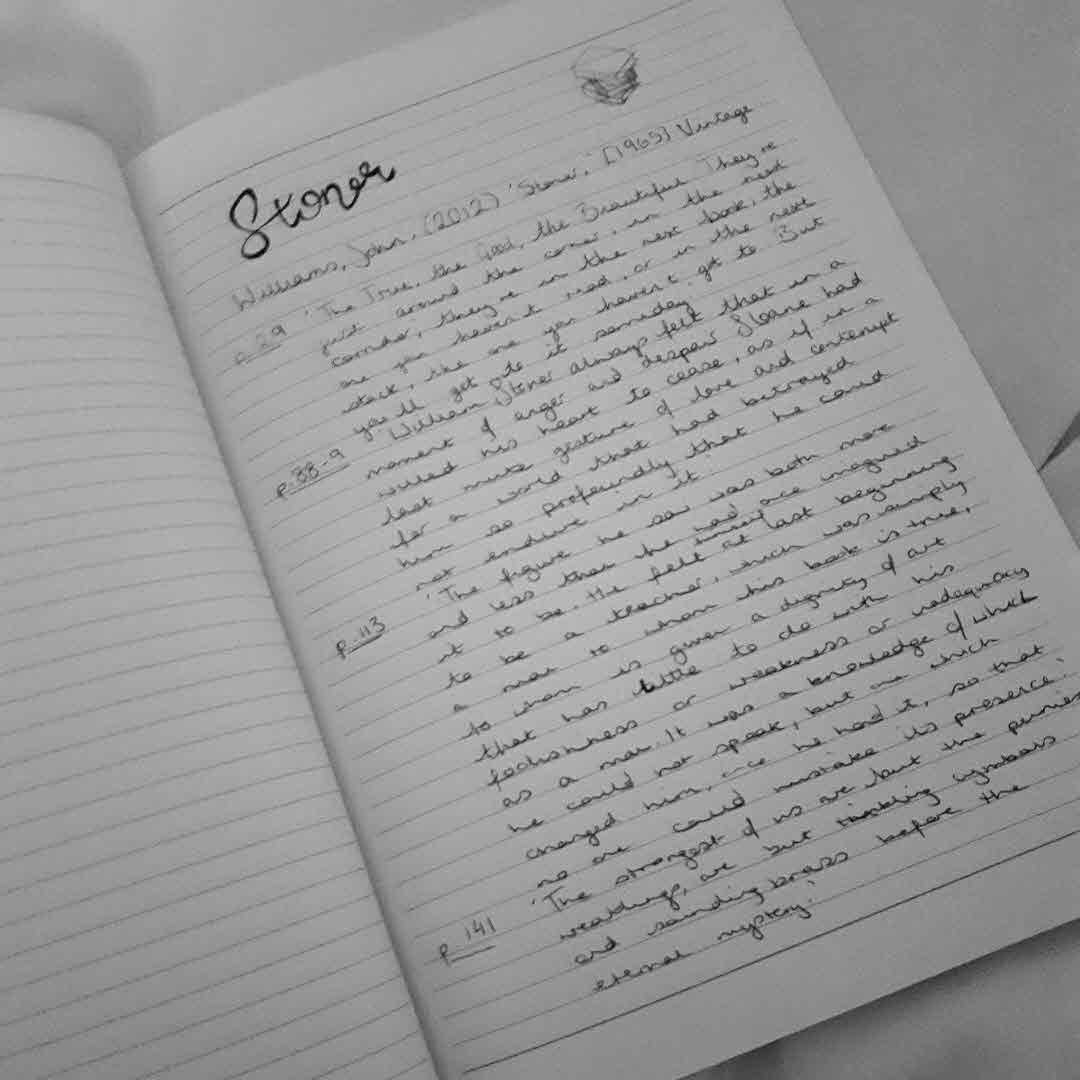 Stoner
Williams, John, (2012) 'Stoner,' [1965] Vintage
p.29 'The True, the Good, the Beautiful. They're
just around the corner, in the next
corridor; they're in the next book, the
one you haven't read, or in the next
stack, the one you haven't got to. But
you'll get to it someday.'
p.88-9 'William Stoner always felt that in a
moment of anger and despair Sloane had
willed his heart to cease, as if in a
last mute gesture of love and contempt
for a world that had betrayed
him so profoundly that he could
not endure in it.'
p.113 'The figure he saw was both more
and less than he had once imagined
it to be. He felt himself at last beginning
to be a teacher, which was simply
a man to whom his book is true,
to whom is given a dignity of art
that has little to do with his
foolishness or weakness or inadequacy
as a man. It was a knowledge of which
he could not speak, but one which
changed him, once he had it, so that
no one could mistake its presence.'
p.141 'The strongest of us are but the puniest
weaklings, are but tinkling cymbals
and sounding brass before the
eternal mystery.'